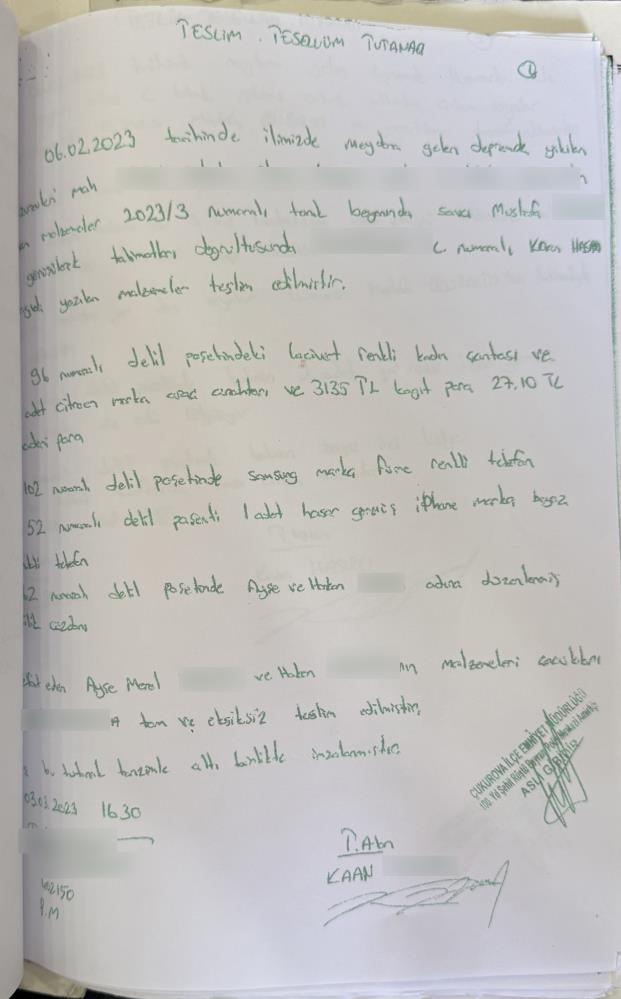 TESLİM . TESELLÜM TUTANAĞ
1
06.02.2023 tarihinde ilimizde meydana gelen depremde yıkılan
mah
malzemeler 2023/3 numaralı tanık beyanında savcı Mustafa
talimatları doğrultusunda numaralı, Kaan HASAN
yazılan malzemeler teslim edilmiştir.
96 numaralı delil poşetindeki lacivet renkli kadın çantası ve
adet citroen marka araç anahtarı ve 3135 TL kağıt para 27.10 TL
para
102 numaralı delil poşetinde samsung marka füme renkli telefon
52 numaralı delil poşenti 1 adet hasar görmüş iphone marka beyaz
telefon
numaralı delil poşetinde Ayşe ve Hakan adına düzenlenmiş
cüzdanı
eden Ayşe Meral ve Hakan ın malzemeleri çocukları
A tam ve eksiksiz teslim edilmiştir.
bu tutanak tanzimle altı birlikte imzalanmıştır.
03.03.2023 16.30
ÇUKUROVA İLÇE EMNİYET MÜDÜRLÜĞÜ
100. Yıl Şehit
ASLI GİBİDİR
T. Alan
KAAN
402150
P.M